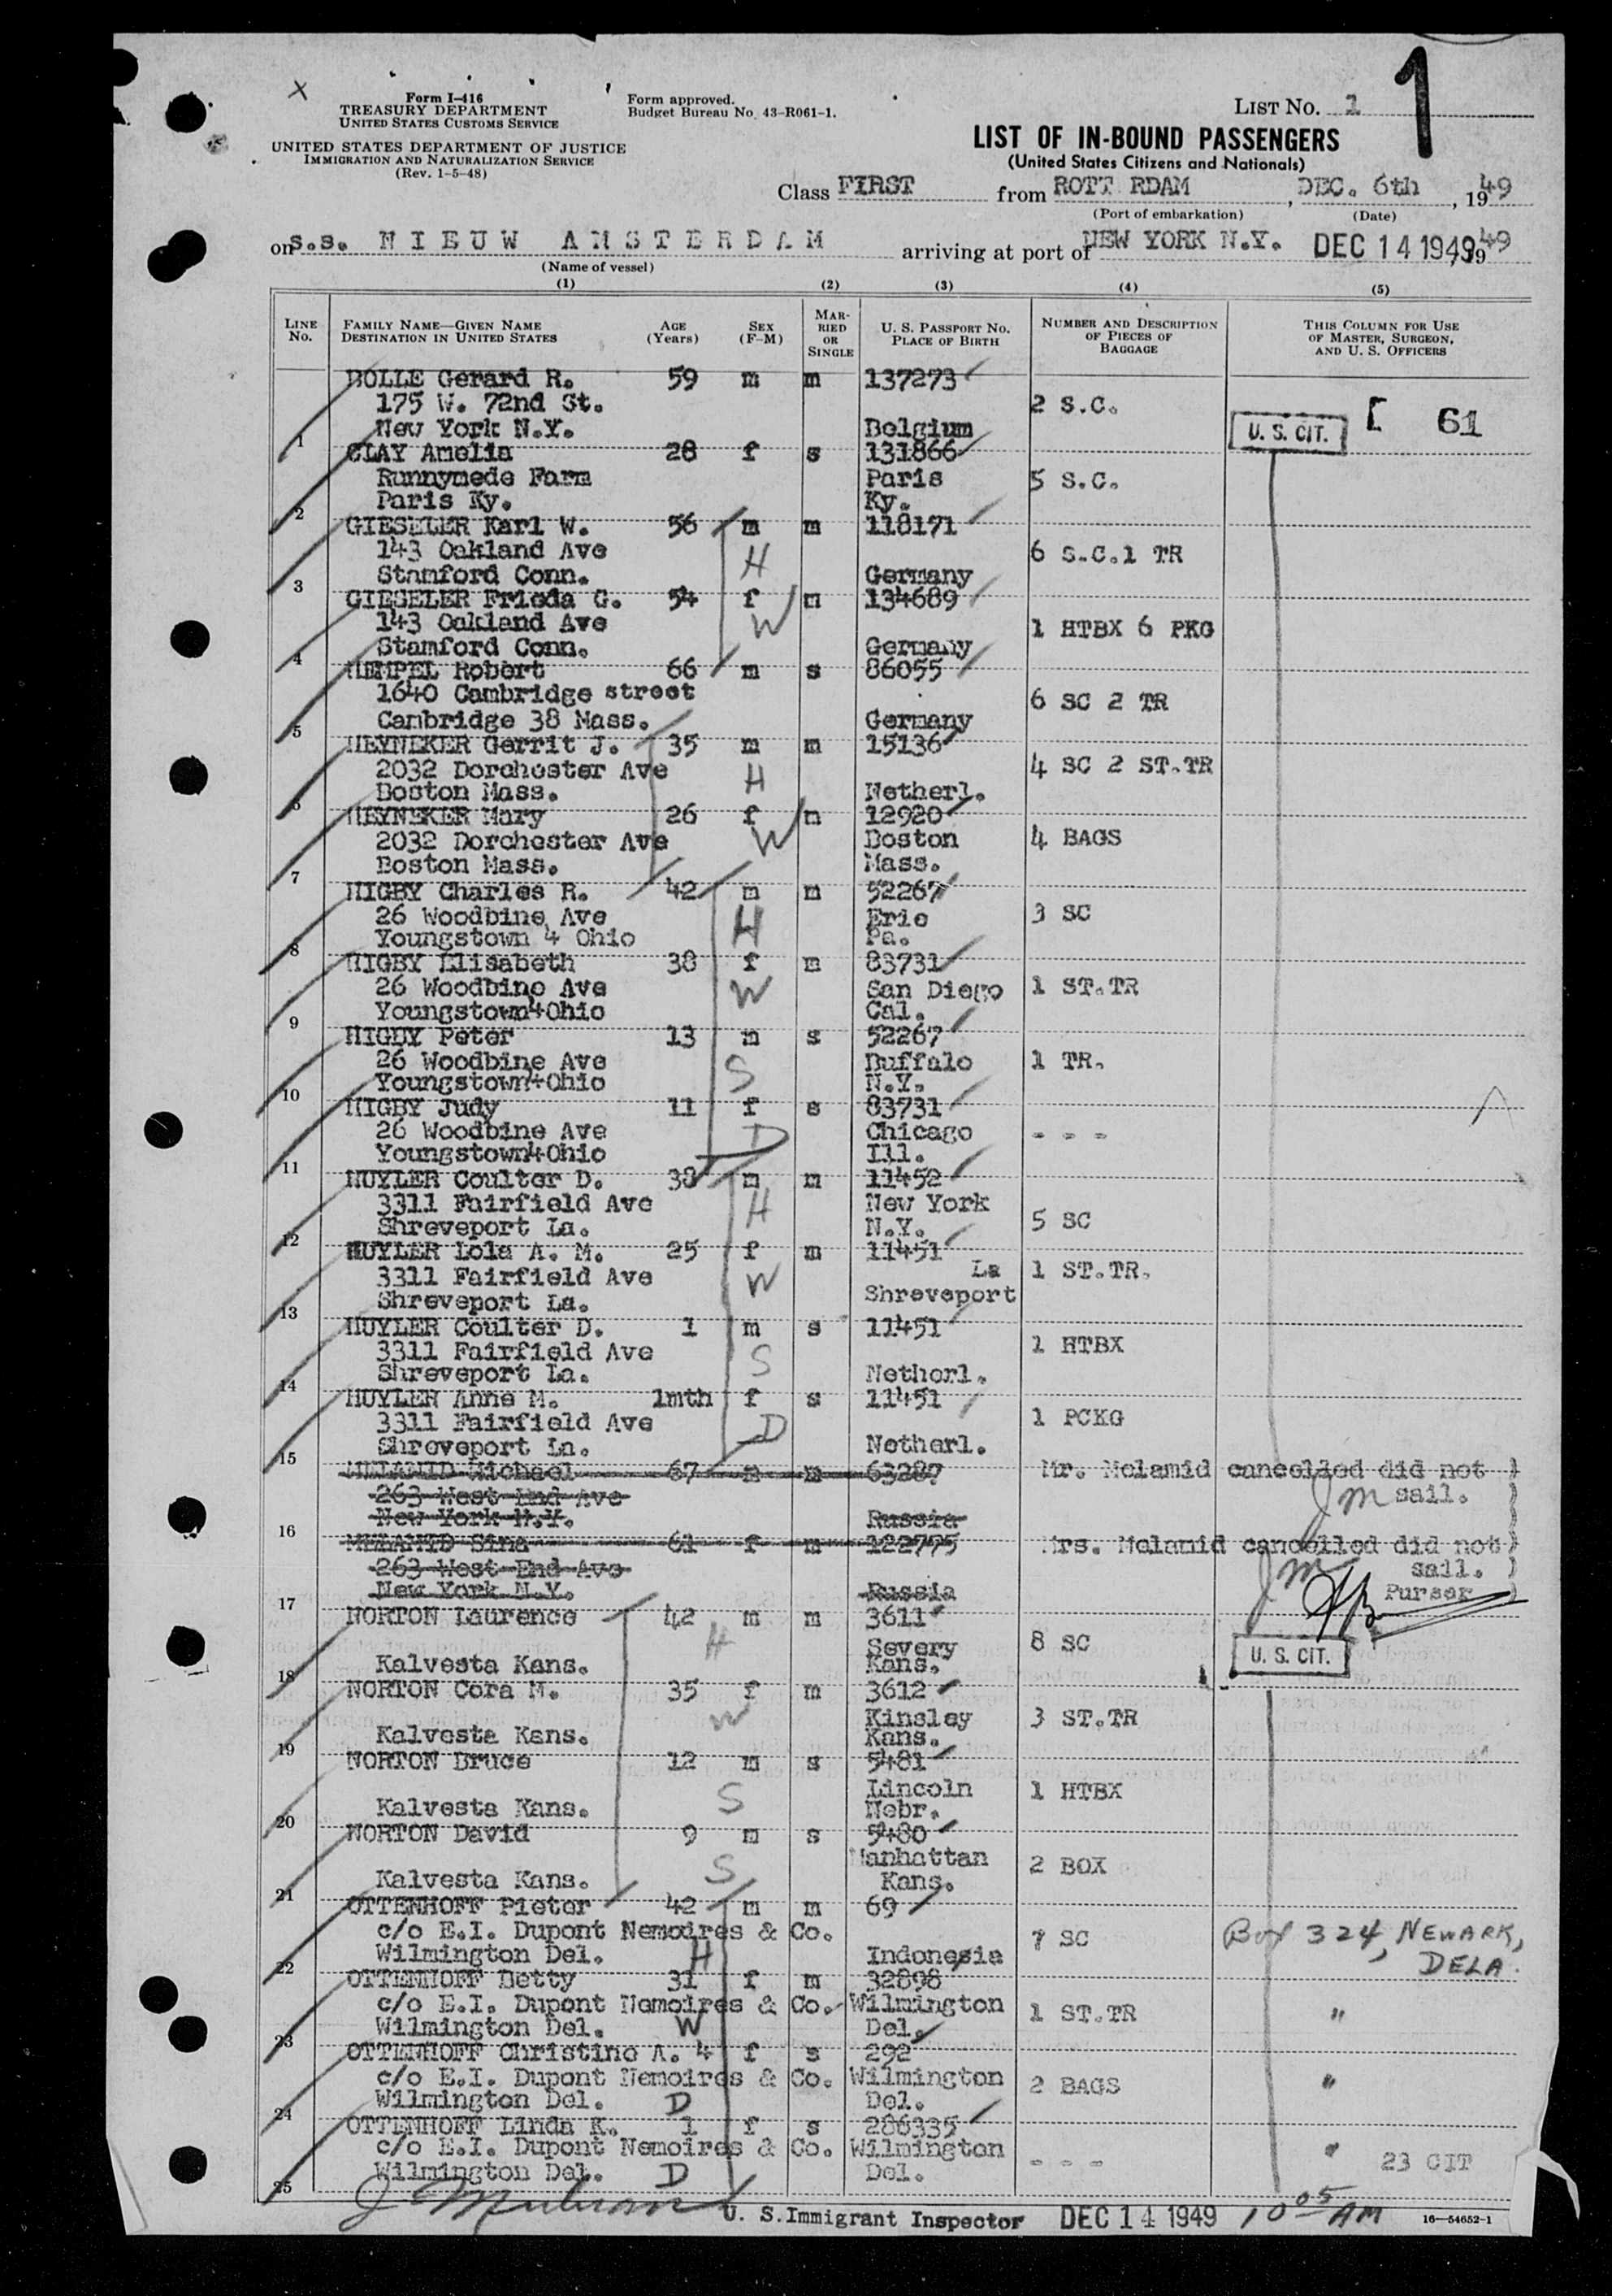 1
X
Form I-416
TREASURY DEPARTMENT
UNITED STATES CUSTOMS SERVICE
UNITED STATES DEPARTMENT OF JUSTICE
IMMIGRATION AND NATURALIZATION SERVICE
(Rev. 1-5-48)
Form approved.
Budget Bureau No. 43-R061-1.
LIST No. 1
LIST OF IN-BOUND PASSENGERS
(United States Citizens and Nationals)
Class FIRST from ROTT RDAM, DEC. 6th, 1949
(Port of embarkation) (Date)
on s.s. NIEUW AMSTERDAM arriving at port of NEW YORK N.Y. DEC 14 1949, 1949
(Name of vessel)
(1) (2) (3) (4) (5)
LINE No. FAMILY NAME—GIVEN NAME DESTINATION IN UNITED STATES AGE (Years) SEX (F-M) MARRIED OR SINGLE U. S. PASSPORT No. PLACE OF BIRTH NUMBER AND DESCRIPTION OF PIECES OF BAGGAGE THIS COLUMN FOR USE OF MASTER, SURGEON, AND U. S. OFFICERS
BOLLE Gerard R. 59 m m 137273
175 W. 72nd St. 2 S.C.
1 New York N.Y. Belgium U. S. CIT. [ 61
CLAY Amelia 28 f s 131866
Runnymede Farm Paris 5 S.C.
2 Paris Ky. Ky.
GIESELER Karl W. 56 m m 118171
143 Oakland Ave H 6 S.C.1 TR
3 Stamford Conn. Germany
GIESELER Frieda G. 54 f m 134689
143 Oakland Ave W 1 HTBX 6 PKG
4 Stamford Conn. Germany
HEMPEL Robert 66 m s 86055
1640 Cambridge street 6 SC 2 TR
5 Cambridge 38 Mass. Germany
HEYNEKER Gerrit J. 35 m m 15136
2032 Dorchester Ave H 4 SC 2 ST.TR
6 Boston Mass. Netherl.
HEYNEKER Mary 26 f m 12920
2032 Dorchester Ave W Boston 4 BAGS
7 Boston Mass. Mass.
HIGBY Charles R. 42 m m 52267
26 Woodbine Ave H Erie 3 SC
8 Youngstown 4 Ohio Pa.
HIGBY Elisabeth 38 f m 83731
26 Woodbine Ave W San Diego 1 ST.TR
9 Youngstown4Ohio Cal.
HIGBY Peter 13 m s 52267
26 Woodbine Ave S Buffalo 1 TR.
10 Youngstown4Ohio N.Y.
HIGBY Judy 11 f s 83731
26 Woodbine Ave D Chicago - - -
11 Youngstown4Ohio Ill.
HUYLER Coulter D. 38 m m 11452
3311 Fairfield Ave H New York 5 SC
12 Shreveport La. N.Y.
HUYLER Lola A. M. 25 f m 11451
3311 Fairfield Ave W La 1 ST.TR.
13 Shreveport La. Shreveport
HUYLER Coulter D. 1 m s 11451
3311 Fairfield Ave S 1 HTBX
14 Shreveport La. Netherl.
HUYLER Anne M. 1mth f s 11451
3311 Fairfield Ave D 1 PCKG
15 Shreveport La. Netherl.
MELAMID Michael 67 m m 63287 Mr. Melamid cancelled did not )
263 West End Ave JM sail. )
16 New York N.Y. Russia
MELAMID Sina 61 f m 122775 Mrs. Melamid cancelled did not )
263 West End Ave JM sail. )
17 New York N.Y. Russia Purser )
NORTON Laurence 42 m m 3611
H Severy 8 SC U. S. CIT.
18 Kalvesta Kans. Kans.
NORTON Cora M. 35 f m 3612
W Kinsley 3 ST.TR
19 Kalvesta Kans. Kans.
NORTON Bruce 12 m s 5481
S Lincoln 1 HTBX
20 Kalvesta Kans. Nebr.
NORTON David 9 m s 5480
S Manhattan 2 BOX
21 Kalvesta Kans. Kans.
OTTENHOFF Pieter 42 m m 69
c/o E.I. Dupont Nemoires & Co. 7 SC Box 324, NEWARK,
22 Wilmington Del. H Indonesia DELA.
OTTENHOFF Betty 31 f m 32898
c/o E.I. Dupont Nemoires & Co. Wilmington 1 ST.TR "
23 Wilmington Del. W Del.
OTTENHOFF Christine A. 4 f s 292
c/o E.I. Dupont Nemoires & Co. Wilmington 2 BAGS "
24 Wilmington Del. D Del.
OTTENHOFF Linda K. 1 f s 286335
c/o E.I. Dupont Nemoires & Co. Wilmington - - - " 23 CIT
25 Wilmington Del. D Del.
U. S. Immigrant Inspector DEC 14 1949 10 05 AM 16—54652-1